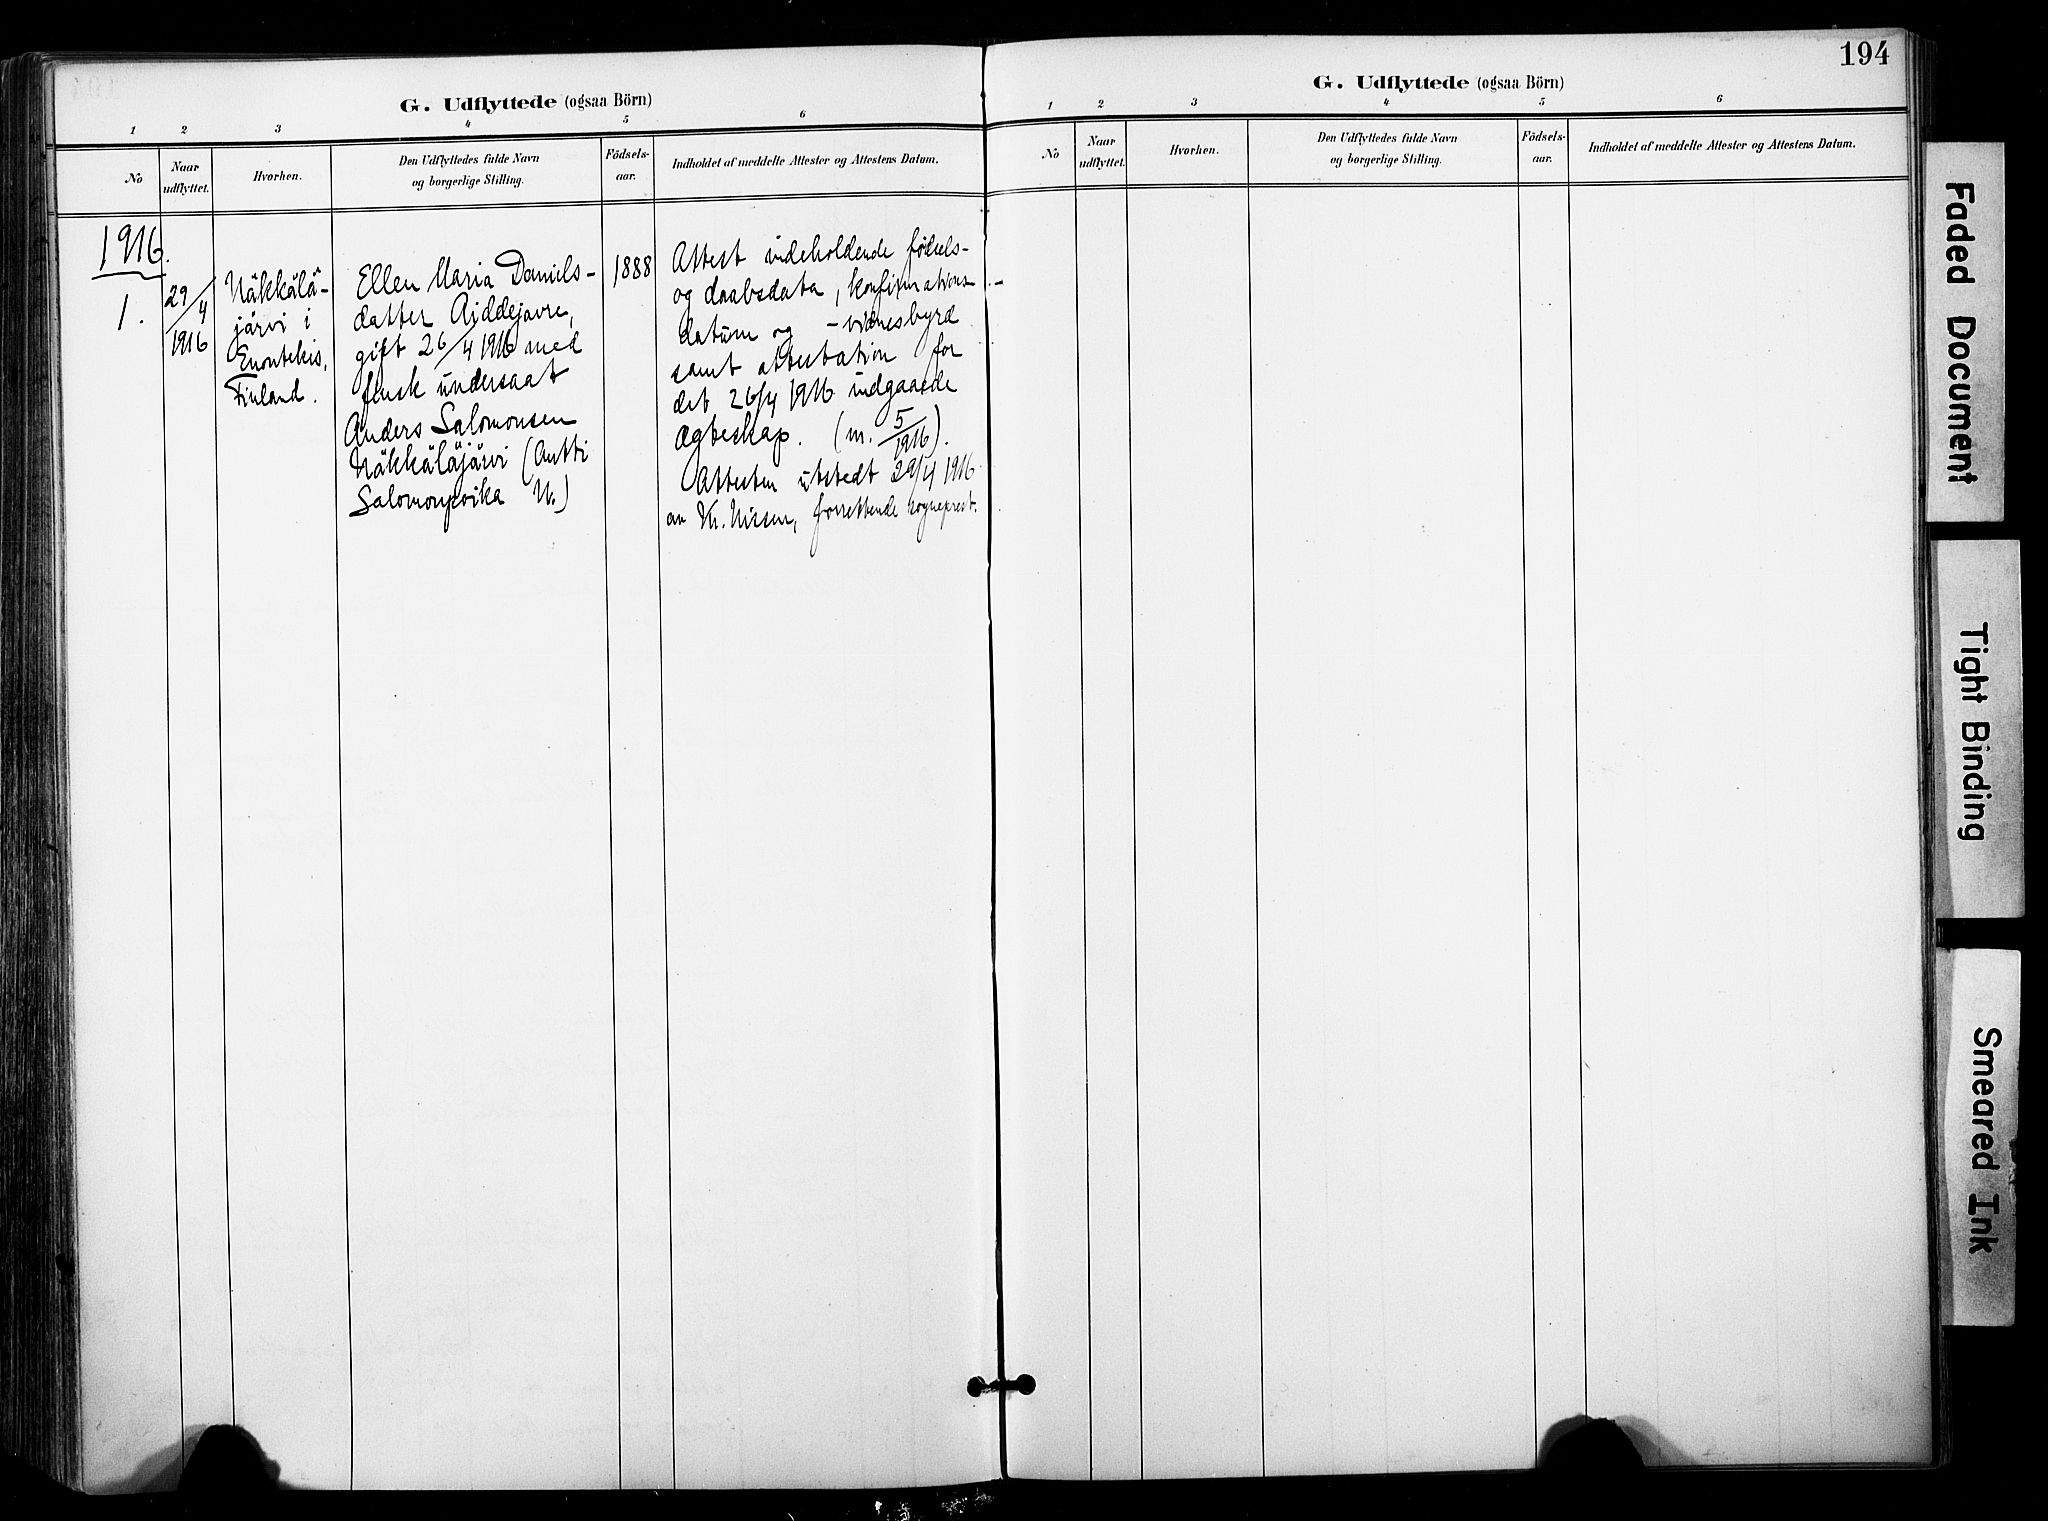 194
G. Udflyttede (ogsaa Börn)
1 2 3 4 5 6
No
Naar udflyttet.
Hvorhen.
Den Udflyttedes fulde Navn
og borgerlige Stilling.
Födsels-
aar.
Indholdet af meddelte Attester og Attestens Datum.
1916.
1.
29/4
1916
Näkkälä-
järvi i
Enontekis,
Finland.
Ellen Maria Daniels-
datter Aiddejavre,
gift 26/4 1916 med
finsk undersaat
Anders Salomonsen
Näkkäläjärvi (Antti
Salomonpoika N.)
1888
Attest indeholdende fødsels-
og daabsdata, konfirmations-
datum og -vidnesbyrd
samt attestation for
det 26/4 1916 indgaaede
egteskap. (m. 5/1916).
Attesten utstedt 29/4 1916
av Kr. Nissen, forrettende sogneprest.
G. Udflyttede (ogsaa Börn)
1 2 3 4 5 6
No
Naar
udflyttet.
Hvorhen.
Den Udflyttedes fulde Navn
og borgerlige Stilling.
Födsels-
aar.
Indholdet af meddelte Attester og Attestens Datum.
Faded Document
Tight Binding
Smeared Ink